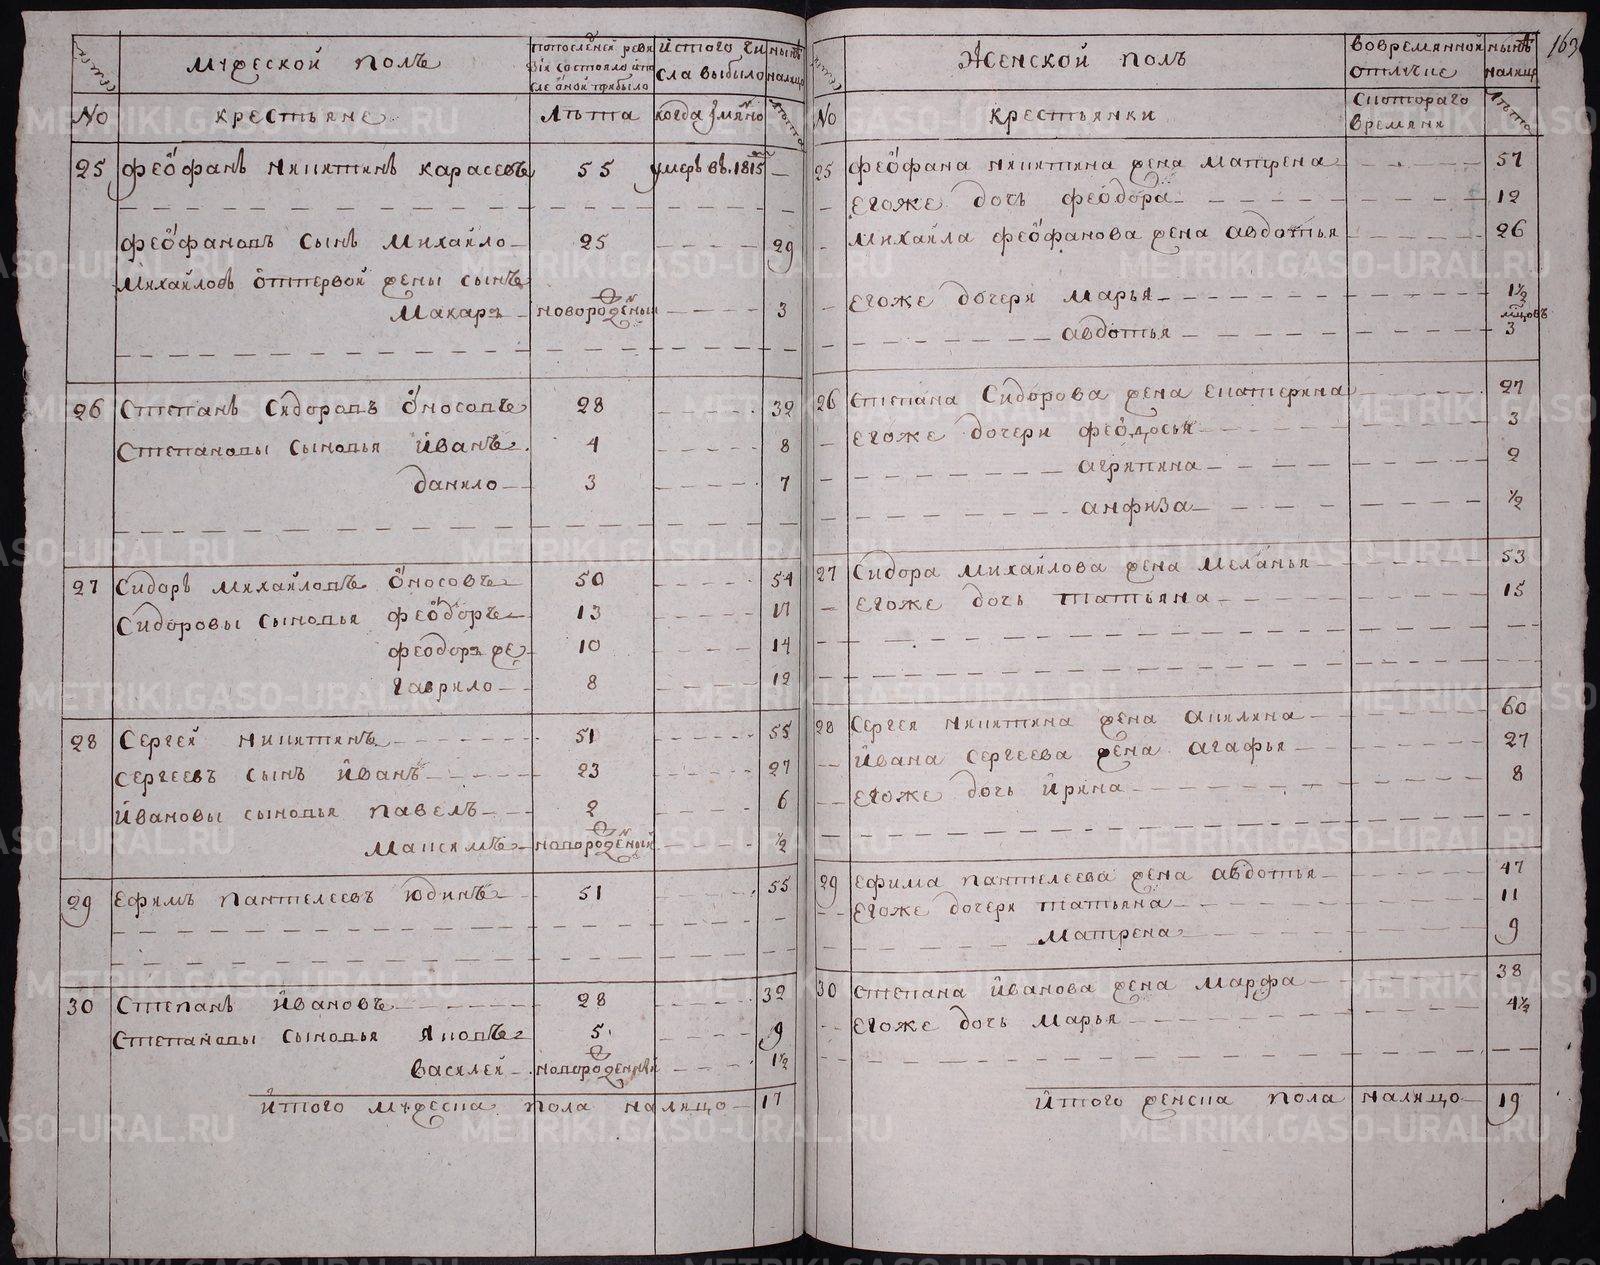 Мужеской полъ
попоследней ревизіи состояло ипосле оной прибыло
Истого числа выбыло
нынѣ налицо
No
крестьяне
Лѣта
когда Имянно
Лѣта
25 Феофанъ Никитинъ Карасевъ 55 умеръ въ 1815 —
Феофановъ сынъ Михайло 25 29
Михайловъ отпервой жены сынъ
Макаръ новорожденный 3
26 Степанъ Сидоровъ Оносовъ 28 32
Степановы сыновья Иванъ 4 8
данило 3 7
27 Сидоръ Михайловъ Оносовъ 50 54
Сидоровы сыновья Феодоръ 13 17
Феодоръ же 10 14
Гаврило 8 12
28 Сергей Никитинъ 51 55
Сергеевъ сынъ Иванъ 23 27
Ивановы сыновья Павелъ 2 6
Максимъ новорожденный ½
29 Ефимъ Пантелеевъ Юдинъ 51 55
30 Степанъ Ивановъ 28 32
Степановы сыновья Яковъ 5 9
Василей новорожденный 1½
Итого мужеска пола налицо 17
163
Женской полъ
вовременной отлучке
нынѣ налицо
No
крестьянки
Скотораго времяни
Лѣта
25 Феофана Никитина жена Матрена 57
Егоже дочь Феодора 12
Михайла Феофанова жена Авдотья 26
Егоже дочери Марья 1½
мѣцовъ
авдотья 3
26 Степана Сидорова жена Екатерина 27
Егоже дочери Феодосья 3
агрипина 2
анфиза ½
27 Сидора Михайлова жена Меланья 53
Егоже дочь Татьяна 15
28 Сергея Никитина жена Акилина 60
Ивана Сергеева жена Агафья 27
Егоже дочь Ирина 8
29 Ефима Пантелеева жена Авдотья 47
Егоже дочери Татьяна 11
Матрена 9
30 Степана Иванова жена Марфа 38
Егоже дочь Марья 4½
Итого женска пола налицо 19
METRIKI.GASO-URAL.RU